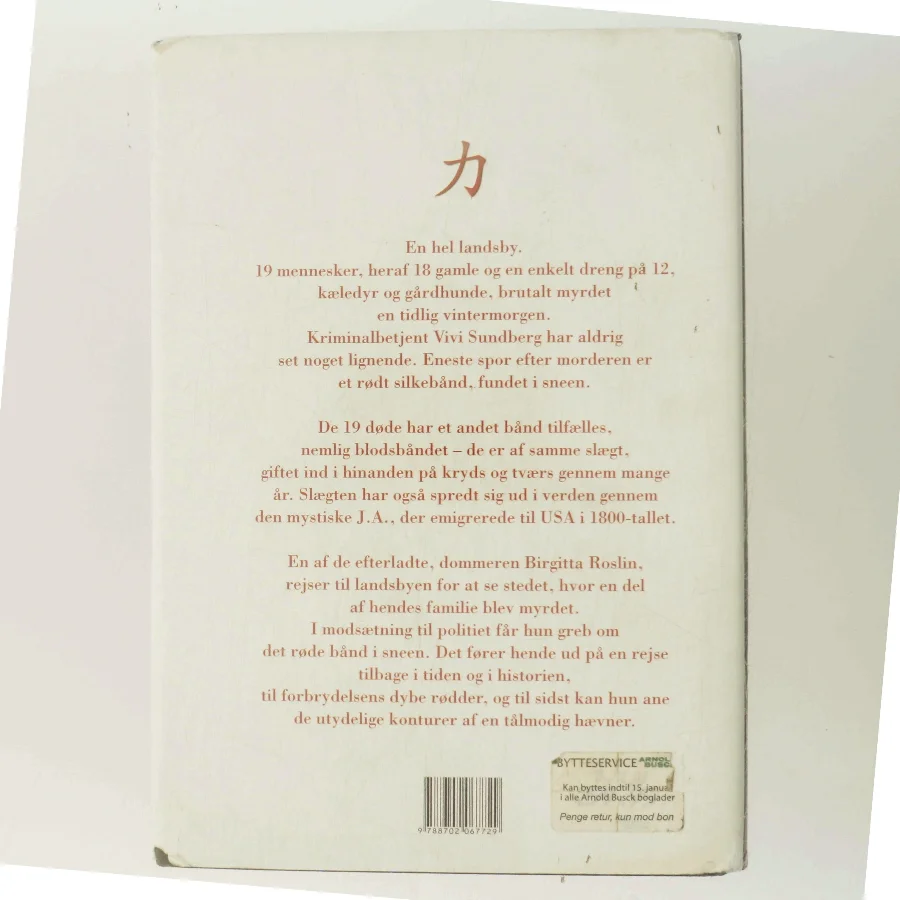 力
En hel landsby.
19 mennesker, heraf 18 gamle og en enkelt dreng på 12,
kæledyr og gårdhunde, brutalt myrdet
en tidlig vintermorgen.
Kriminalbetjent Vivi Sundberg har aldrig
set noget lignende. Eneste spor efter morderen er
et rødt silkebånd, fundet i sneen.
De 19 døde har et andet bånd tilfælles,
nemlig blodsbåndet – de er af samme slægt,
giftet ind i hinanden på kryds og tværs gennem mange
år. Slægten har også spredt sig ud i verden gennem
den mystiske J.A., der emigrerede til USA i 1800-tallet.
En af de efterladte, dommeren Birgitta Roslin,
rejser til landsbyen for at se stedet, hvor en del
af hendes familie blev myrdet.
I modsætning til politiet får hun greb om
det røde bånd i sneen. Det fører hende ud på en rejse
tilbage i tiden og i historien,
til forbrydelsens dybe rødder, og til sidst kan hun ane
de utydelige konturer af en tålmodig hævner.
BYTTESERVICE ARNOL BUSC
Kan byttes indtil 15. janua
i alle Arnold Busck boglader
Penge retur, kun mod bon
9 788702 067729